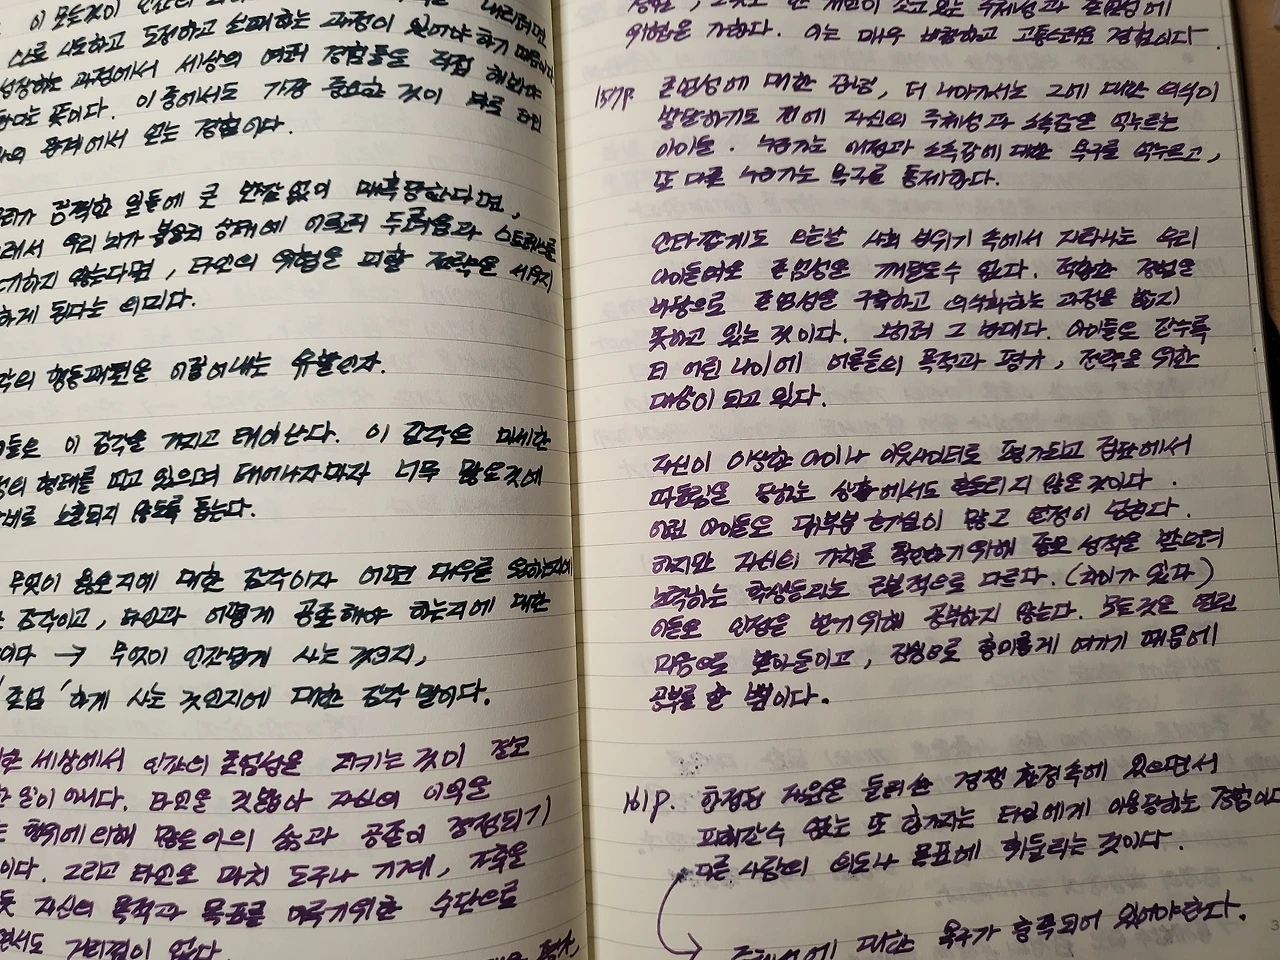 스로 시도하고 도전하고 실패하는 과정이 있어야 하기 때문이다
성장하는 과정에서 세상의 여러 경험들을 직접 해봐야
한다는 뜻이다. 이 중에서도 가장 중요한 것이 바로 타인
과의 관계에서 얻는 경험이다.
우리가 끔찍한 일들에 큰 반감 없이 매혹당한다면,
그래서 우리 뇌가 불일치 상태에 이르러 두려움과 스트레스를
느끼지 않는다면, 타인의 위협을 피할 전략을 세우지
못하게 된다는 의미다.
각의 행동패턴을 이끌어내는 유발인자.
이 감각을 가지고 태어난다. 이 감각은 미세한
형태를 띠고 있으며 태어나자마자 너무 많은 것에
노출되지 않도록 돕는다.
무엇이 옳은지에 대한 감각이자 어떤 대우를 원하는지에
감각이고, 타인과 어떻게 공존해야 하는지에 대한
이다 → 무엇이 인간답게 사는 것인지,
'존엄'하게 사는 것인지에 대한 감각 말이다.
한 세상에서 인간의 존엄성을 지키는 것이 결코
한 일이 아니다. 타인을 짓밟아 자신의 이익을
행위에 의해 많은 이의 삶과 공존이 결정되기
이다. 그리고 타인을 마치 도구나 기계, 가축을
듯 자신의 목적과 목표를 이루기 위한 수단으로
면서도 거리낌이 없다.
위협을 가한다. 이는 매우 비참하고 고통스러운 경험이다.
157P. 존엄성에 대한 관념, 더 나아가서는 그에 대한 의식이
발달하기도 전에 자신의 주체성과 소속감을 억누르는
아이들. 누군가는 애정과 소속감에 대한 욕구를 억누르고,
또 다른 누군가는 욕구를 통제한다.
안타깝게도 오늘날 사회 분위기 속에서 자라나는 우리
아이들이 존엄성을 깨달을 수 없다. 적합한 경험을
바탕으로 존엄성을 구축하고 의식화하는 과정을 밟지
못하고 있는 것이다. 오히려 그 반대다. 아이들은 갈수록
더 어린 나이에 어른들의 목적과 평가, 전략을 위한
대상이 되고 있다.
자신이 이상한 아이나 아웃사이더로 평가되고 집단에서
따돌림을 당하는 상황에서도 흔들리지 않을 것이다.
이런 아이들은 대부분 호기심이 많고 안정이 넘친다.
하지만 자신의 가치를 확인하기 위해 좋은 성적을 받으려
노력하는 학생들과는 근본적으로 다르다. (차이가 있다)
이들은 인정을 받기 위해 공부하지 않는다. 모든 것을 열린
마음으로 받아들이고, 진심으로 흥미롭게 여기기 때문에
공부를 할 뿐이다.
161P. 한정된 자원을 둘러싼 경쟁 환경 속에 있으면서
피해갈 수 없는 또 한가지는 타인에게 이용당하는 경험이다
다른 사람의 의도나 목표에 휘둘리는 것이다.
대한 욕구가 충족되어 있어야 한다.